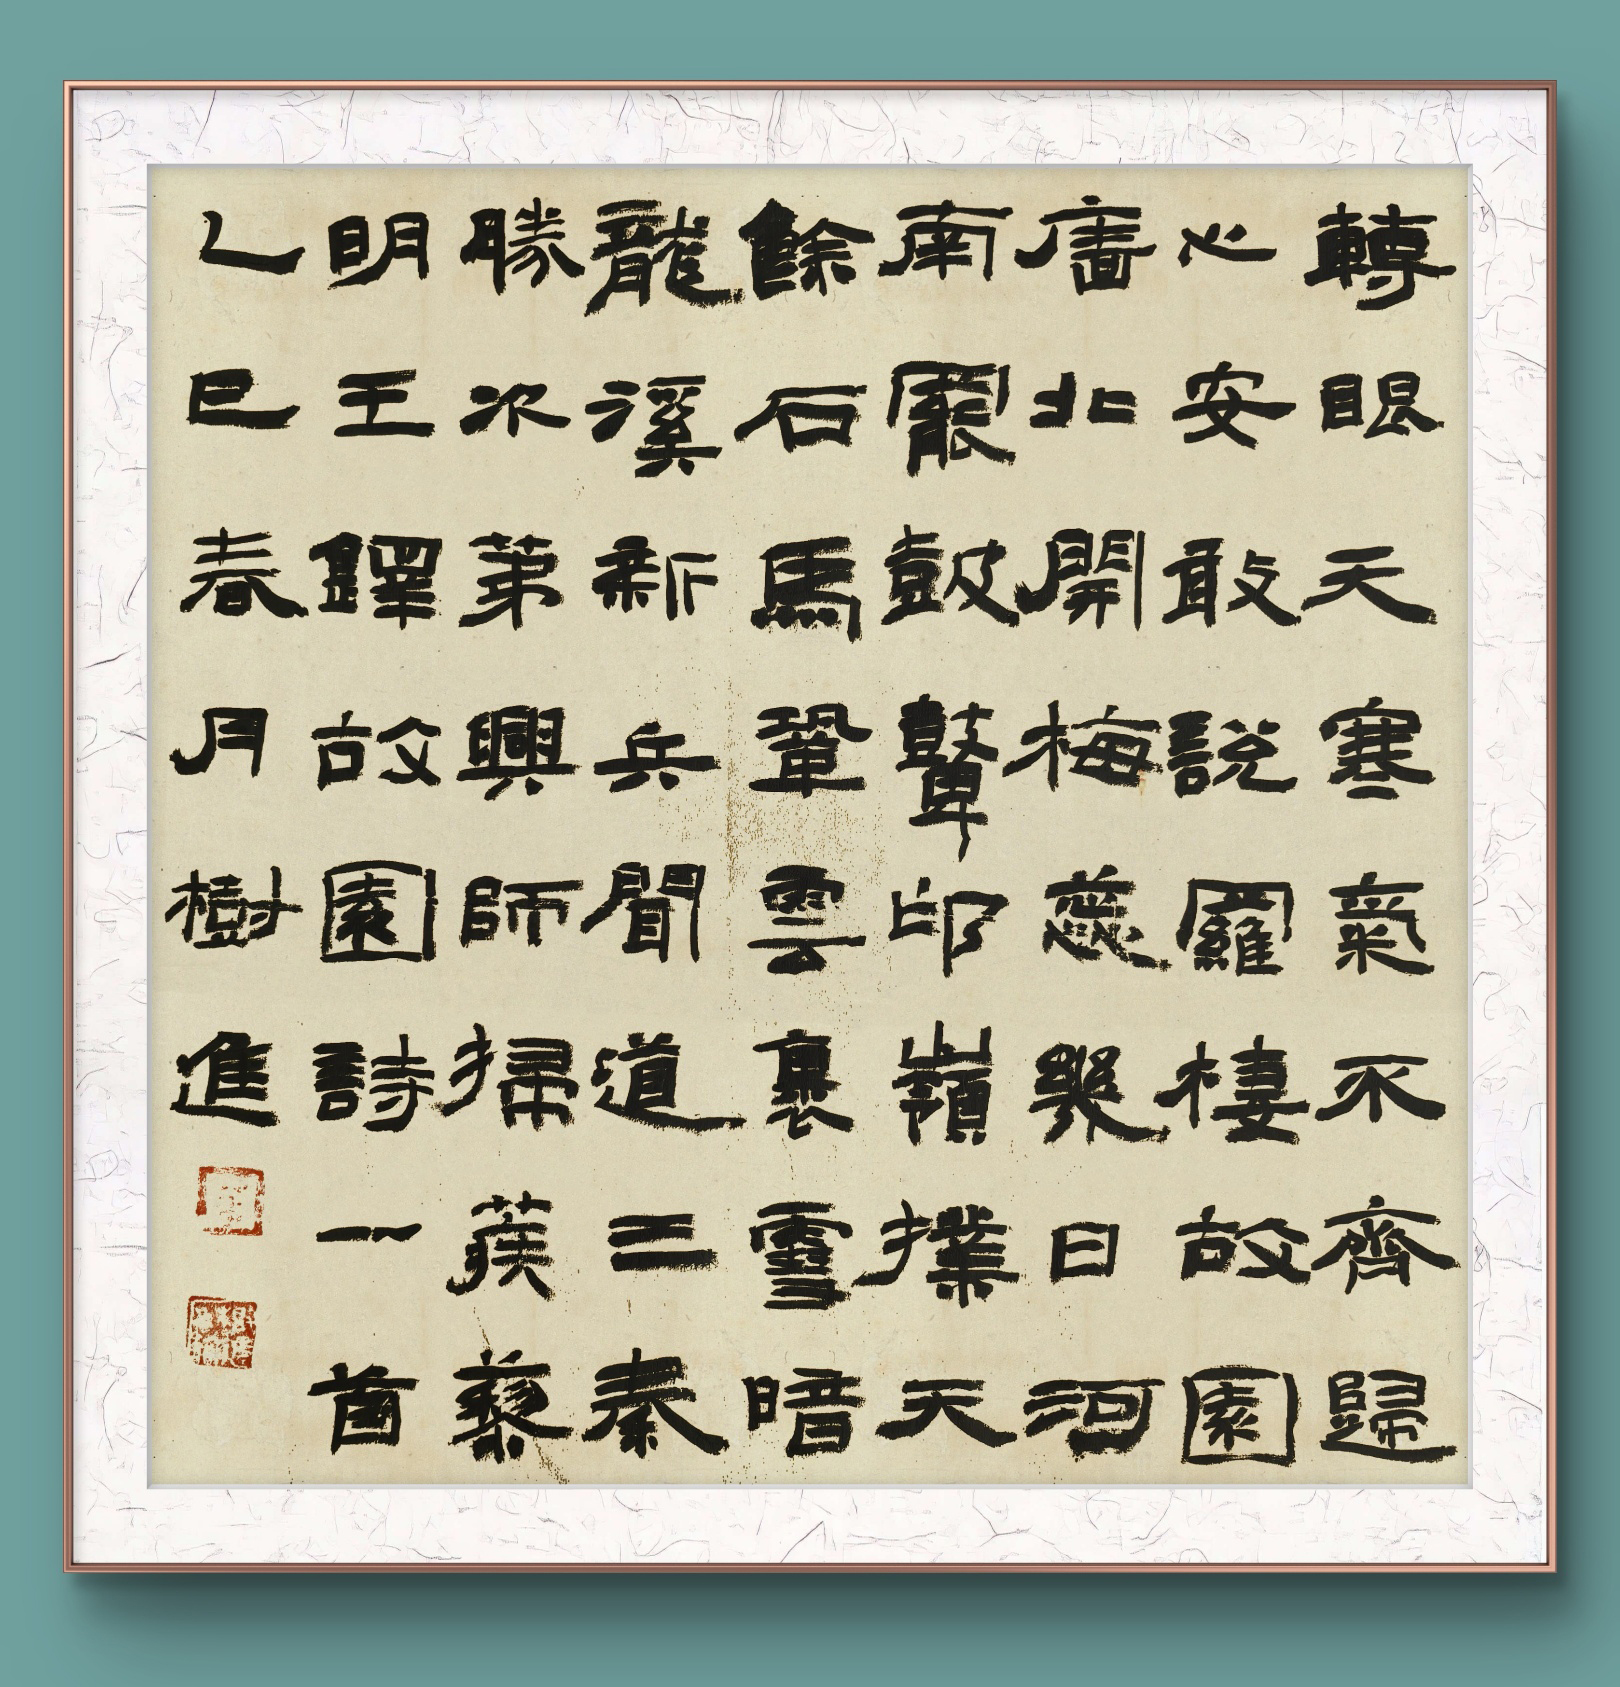 轉眼天寒氣不齊歸
心安敢說羅棲故園
廧北開梅蕊幾日河
南罷鼓鼙邛嶺撲天
餘石馬鞏雲裹雪暗
龍溪新兵聞道三秦
勝次第興師掃蒺藜
明王鐸故園詩一首
乙巳春月樹進